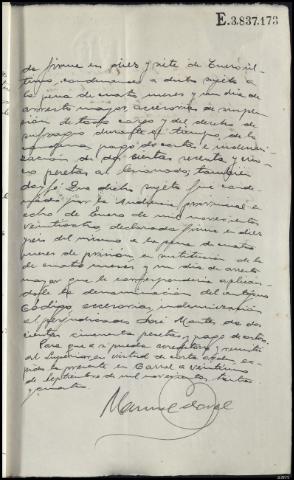 E.3.837.173
de firme en diez y siete de Enero úl-
timo, condenarse a dicho sujeto a
la pena de cuatro meses y un día de
arresto mayor, accesorias de suspen-
sión de todo cargo y del derecho de
sufragio durante el tiempo de la
condena, pago de costas e indemni-
zación de doscientas setenta y cin-
co pesetas al
dicho sujeto fue conde-
nado por la Audiencia provincial en
ocho de Enero de mil novecientos
veinticuatro, declarada firme en diez
del mismo a la pena de cuatro
meses de prisión, en sustitución de la
de cuatro meses y un día de arresto
mayor que le correspondería aplican-
dose la denominación del antiguo
Código, accesorias, e indemnización
al perjudicado José Montes de dos
cientas cincuenta pesetas y pago de costas.
Para que así pueda acreditarse y remitir
al Superior, en virtud de carta orden, ex-
pido la presente en Carral a veintiuno
de Septiembre de mil novecientos treinta
y cuatro.
Manuel